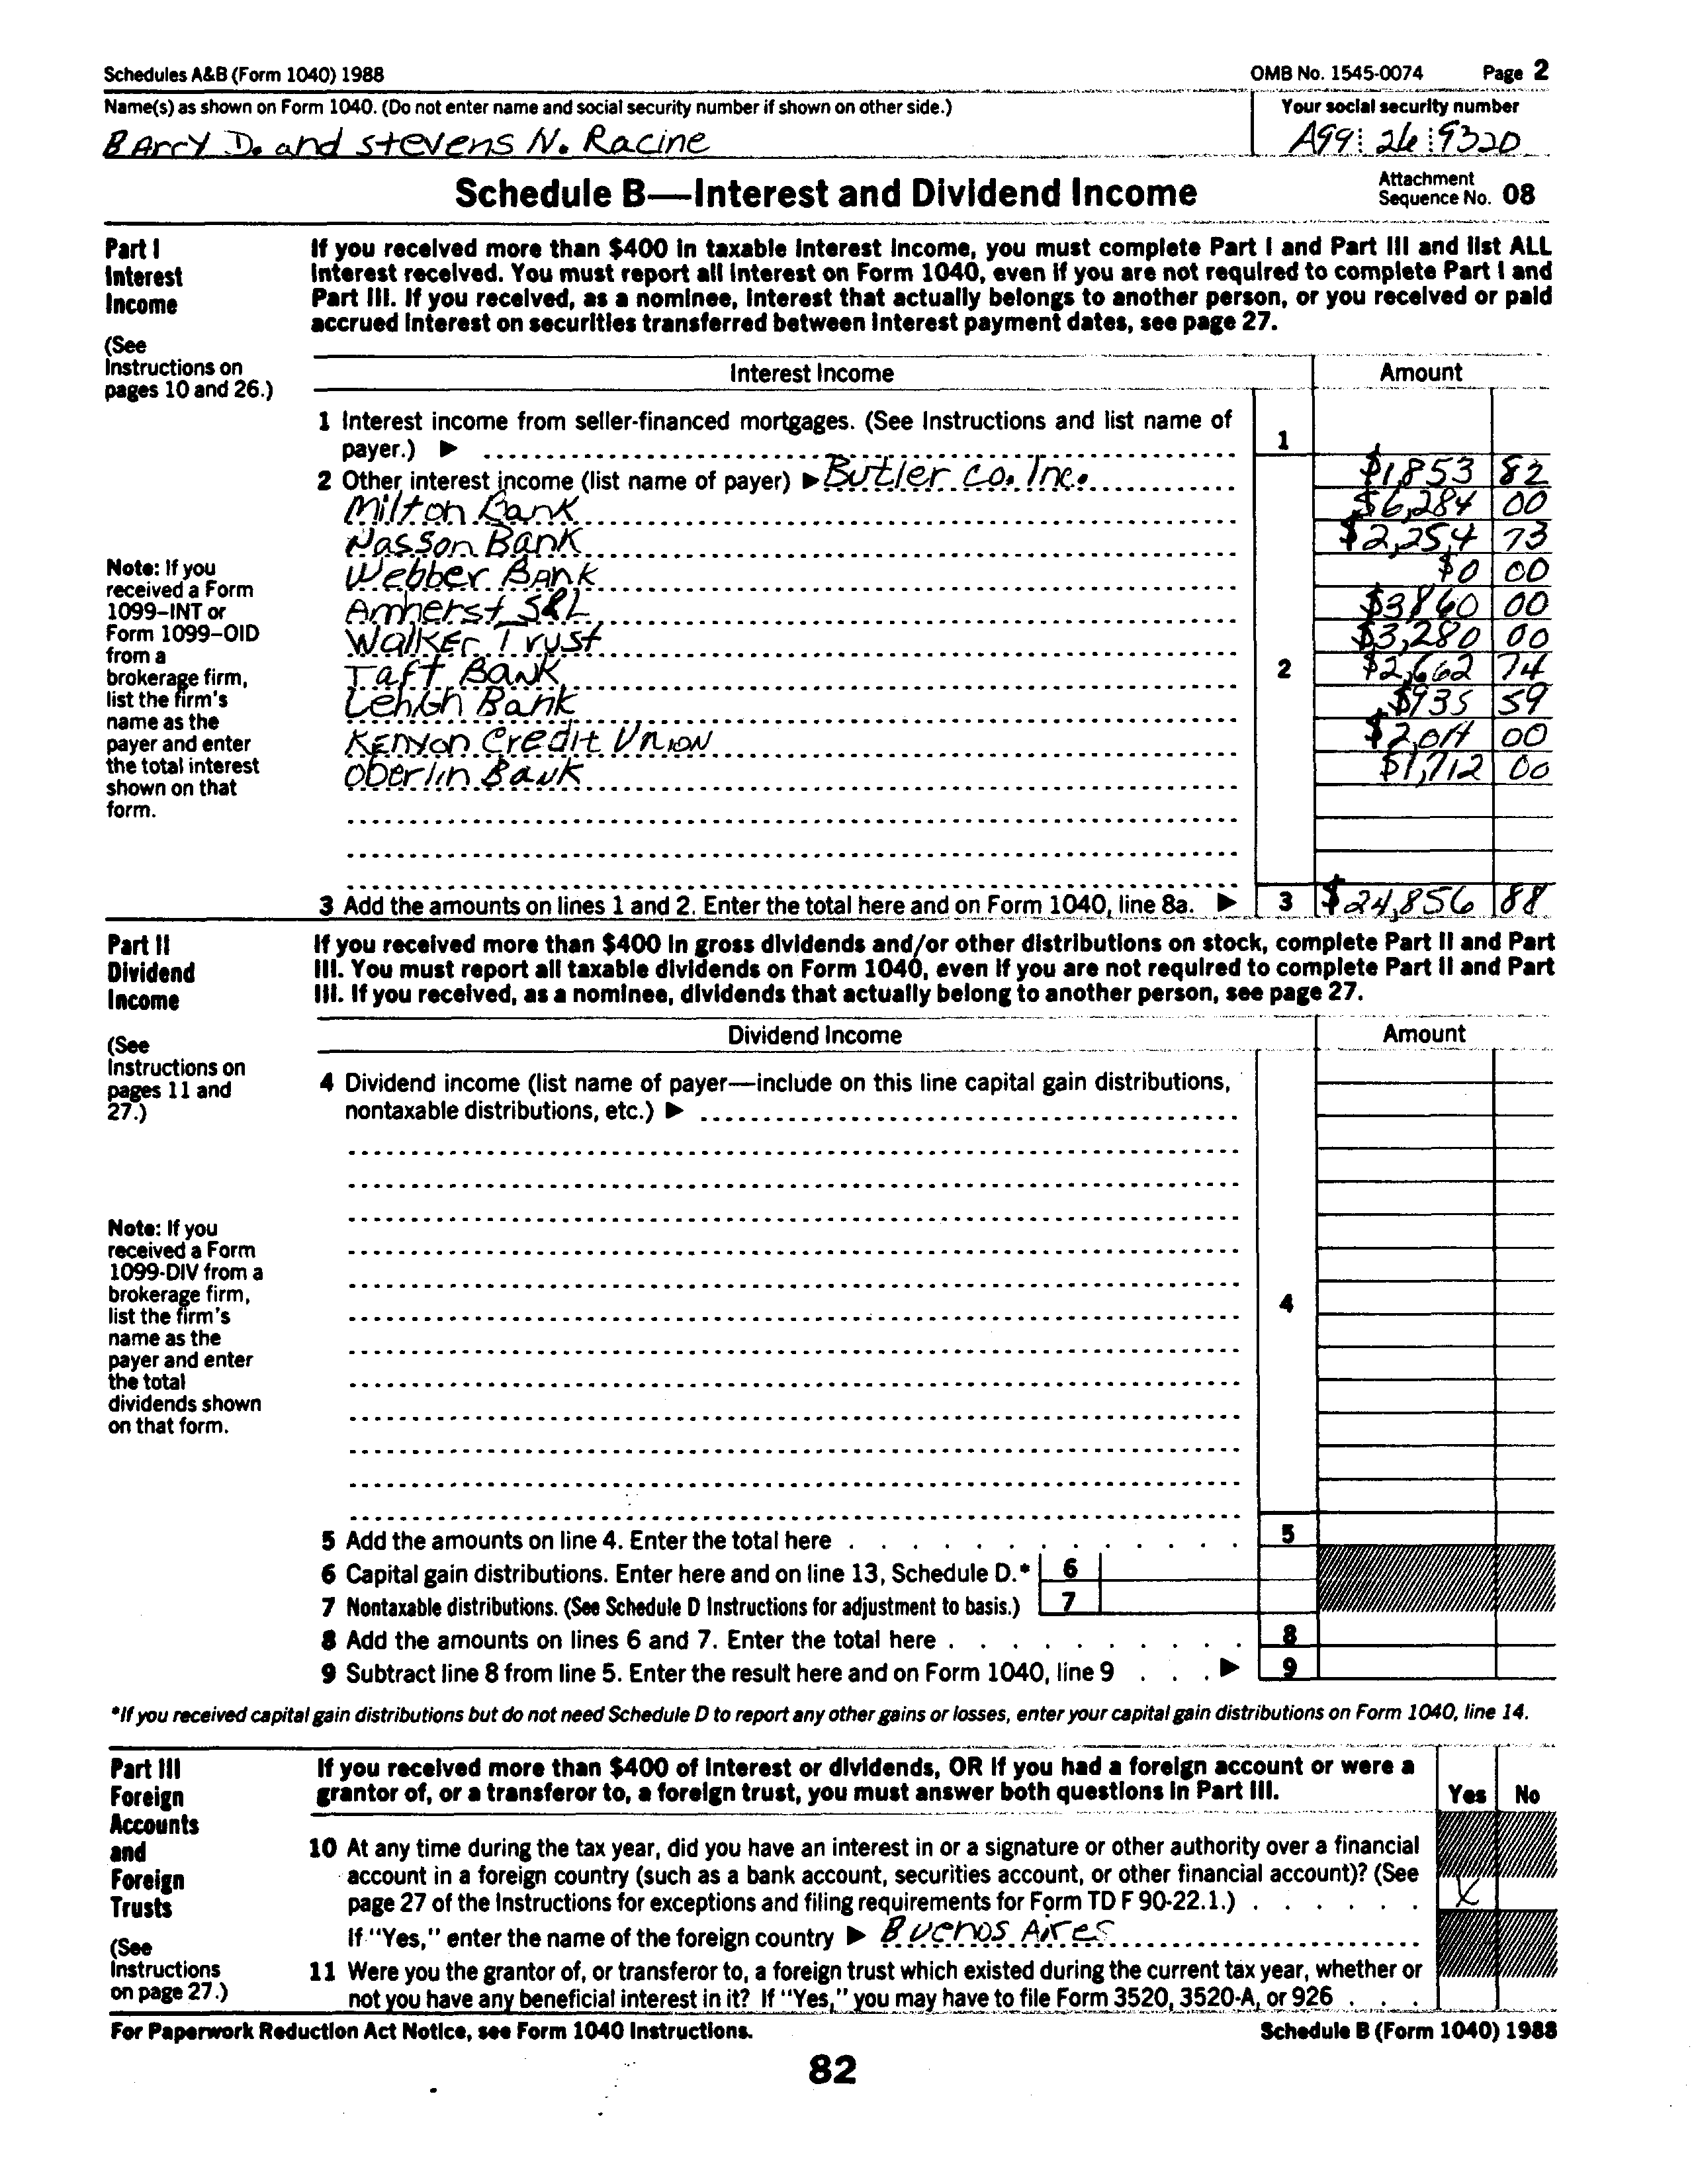 Schedules A&B (Form 1040) 1988 OMB No. 1545-0074 Page 2
Name(s) as shown on Form 1040. (Do not enter name and social security number if shown on other side.) Your social security number
BArry D. and stevens N. Racine A99 26 9320
Schedule B—Interest and Dividend Income Attachment Sequence No. 08
Part I
Interest
Income
(See
Instructions on
pages 10 and 26.)
If you received more than $400 in taxable interest income, you must complete Part I and Part III and list ALL
interest received. You must report all interest on Form 1040, even if you are not required to complete Part I and
Part III. If you received, as a nominee, interest that actually belongs to another person, or you received or paid
accrued interest on securities transferred between interest payment dates, see page 27.
Interest Income Amount
1 Interest income from seller-financed mortgages. (See Instructions and list name of
payer.) ▶ 1
2 Other interest income (list name of payer) ▶ Butler co. Inc. $1,853 82
Milton Bank $6,284 00
Nasson Bank $2,254 73
Webber BAnk $0 00
Amherst S&L $3860 00
WalkEr Trust $3,280 00
Taft Bank 2 $2,662 74
LehiGh Bank $935 59
KEnyon Credit UnioN $2,014 00
Oberlin Bank $1,712 00
Note: If you
received a Form
1099–INT or
Form 1099–OID
from a
brokerage firm,
list the firm's
name as the
payer and enter
the total interest
shown on that
form.
3 Add the amounts on lines 1 and 2. Enter the total here and on Form 1040, line 8a. ▶ 3 $24,856 88
Part II
Dividend
Income
(See
Instructions on
pages 11 and
27.)
If you received more than $400 in gross dividends and/or other distributions on stock, complete Part II and Part
III. You must report all taxable dividends on Form 1040, even if you are not required to complete Part II and Part
III. If you received, as a nominee, dividends that actually belong to another person, see page 27.
Dividend Income Amount
4 Dividend income (list name of payer—include on this line capital gain distributions,
nontaxable distributions, etc.) ▶
4
Note: If you
received a Form
1099-DIV from a
brokerage firm,
list the firm's
name as the
payer and enter
the total
dividends shown
on that form.
5 Add the amounts on line 4. Enter the total here 5
6 Capital gain distributions. Enter here and on line 13, Schedule D.* 6
7 Nontaxable distributions. (See Schedule D Instructions for adjustment to basis.) 7
8 Add the amounts on lines 6 and 7. Enter the total here 8
9 Subtract line 8 from line 5. Enter the result here and on Form 1040, line 9 ▶ 9
*If you received capital gain distributions but do not need Schedule D to report any other gains or losses, enter your capital gain distributions on Form 1040, line 14.
Part III
Foreign
Accounts
and
Foreign
Trusts
(See
Instructions
on page 27.)
If you received more than $400 of interest or dividends, OR if you had a foreign account or were a
grantor of, or a transferor to, a foreign trust, you must answer both questions in Part III. Yes No
10 At any time during the tax year, did you have an interest in or a signature or other authority over a financial
account in a foreign country (such as a bank account, securities account, or other financial account)? (See
page 27 of the Instructions for exceptions and filing requirements for Form TD F 90-22.1.) X
If "Yes," enter the name of the foreign country ▶ Buenos Aires
11 Were you the grantor of, or transferor to, a foreign trust which existed during the current tax year, whether or
not you have any beneficial interest in it? If "Yes," you may have to file Form 3520, 3520-A, or 926
For Paperwork Reduction Act Notice, see Form 1040 Instructions. Schedule B (Form 1040) 1988
82